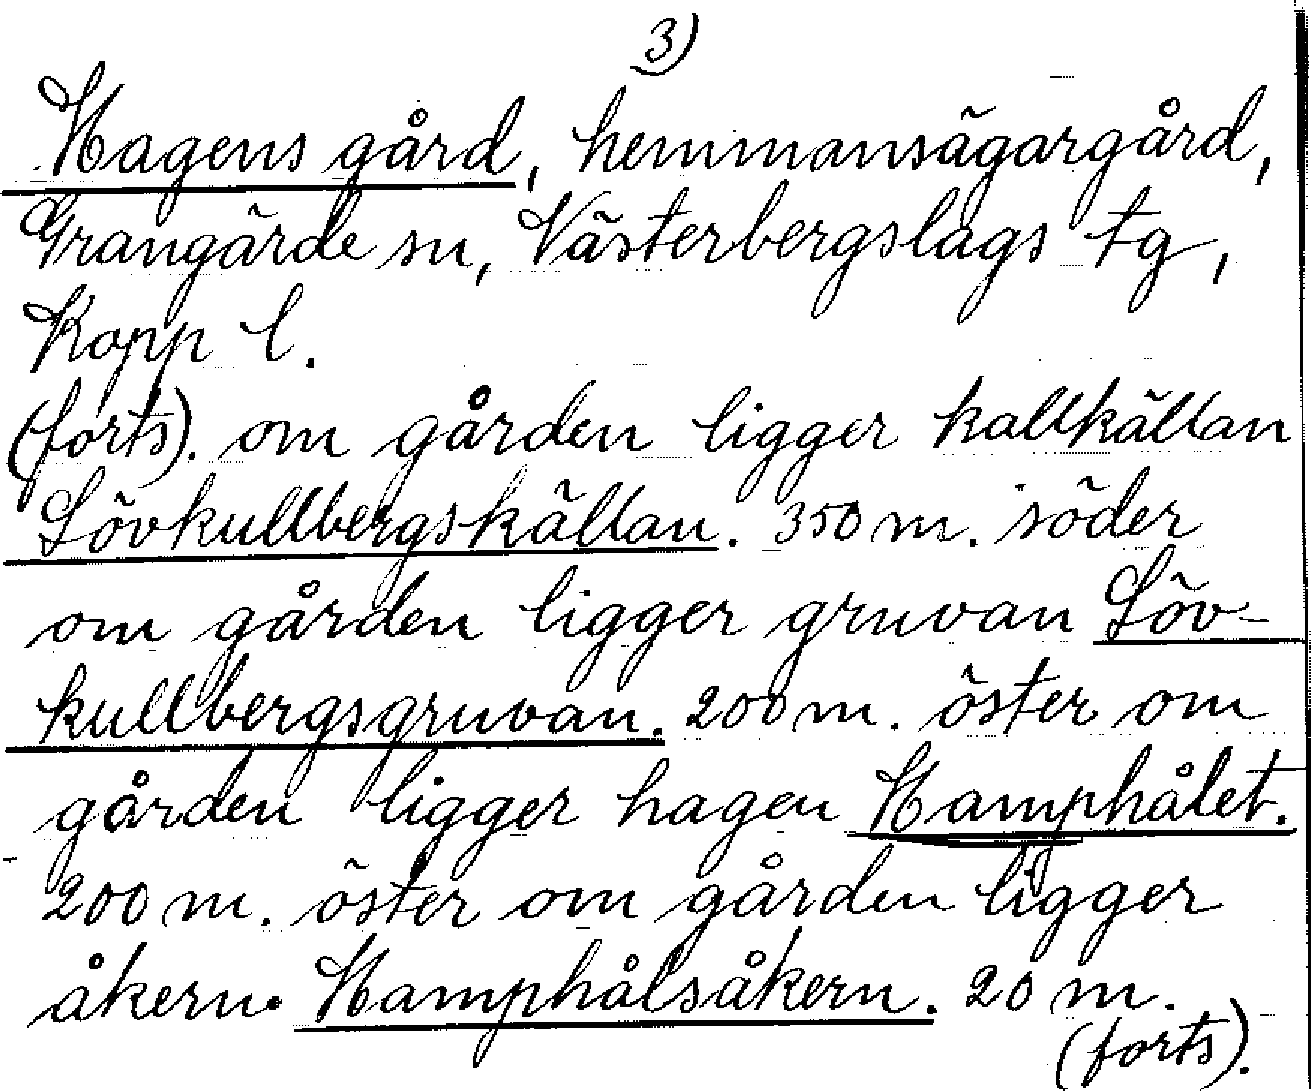 3)
Hagens gård, hemmansägargård,
Grangärde sn, Västerbergslags tg,
Kopp l.
(forts). om gården ligger kallkällan
Lövkullbergskällan. 350 m. söder
om gården ligger gruvan Löv-
kullbergsgruvan. 200 m. öster om
gården ligger hagen Hamphålet.
200 m. öster om gården ligger
åkern. Hamphålsåkern. 20 m.
(forts).